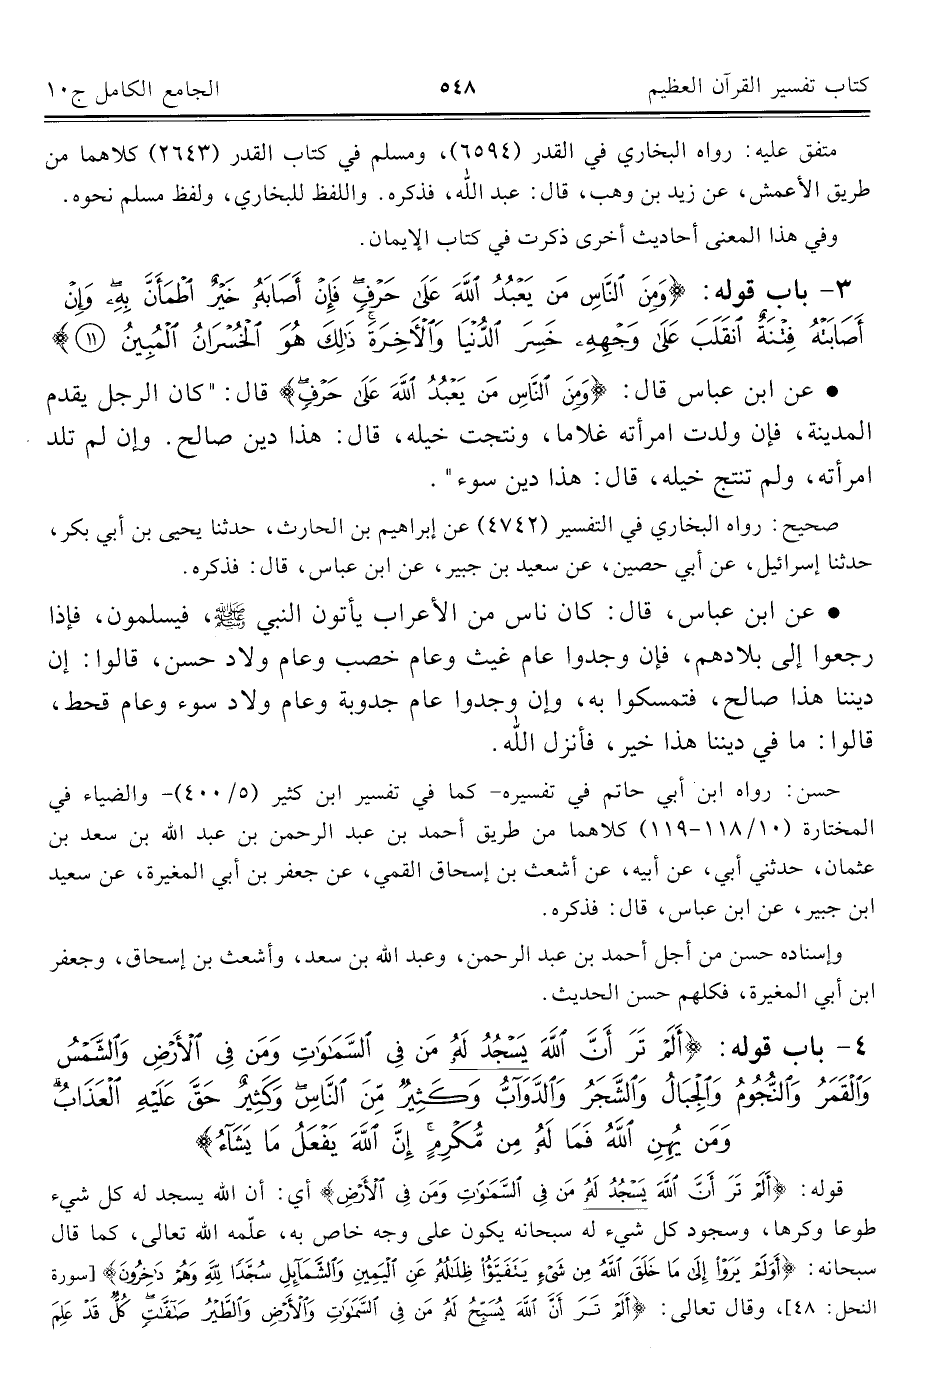 كتاب تفسير القرآن العظيم ٥٤٨ الجامع الكامل ج١٠
متفق عليه: رواه البخاري في القدر (٦٥٩٤)، ومسلم في كتاب القدر (٢٦٤٣) كلاهما من
طريق الأعمش، عن زيد بن وهب، قال: عبد الله، فذكره. واللفظ للبخاري، ولفظ مسلم نحوه.
وفي هذا المعنى أحاديث أخرى ذكرت في كتاب الإيمان.
٣- باب قوله: ﴿وَمِنَ ٱلنَّاسِ مَن يَعۡبُدُ ٱللَّهَ عَلَىٰ حَرۡفٖۖ فَإِنۡ أَصَابَهُۥ خَيۡرٌ ٱطۡمَأَنَّ بِهِۦۖ وَإِنۡ
أَصَابَتۡهُ فِتۡنَةٌ ٱنقَلَبَ عَلَىٰ وَجۡهِهِۦ خَسِرَ ٱلدُّنۡيَا وَٱلۡأٓخِرَةَۚ ذَٰلِكَ هُوَ ٱلۡخُسۡرَانُ ٱلۡمُبِينُ ١١﴾
● عن ابن عباس قال: ﴿وَمِنَ ٱلنَّاسِ مَن يَعۡبُدُ ٱللَّهَ عَلَىٰ حَرۡفٖۖ﴾ قال: "كان الرجل يقدم
المدينة، فإن ولدت امرأته غلاما، ونتجت خيله، قال: هذا دين صالح. وإن لم تلد
امرأته، ولم تنتج خيله، قال: هذا دين سوء".
صحيح: رواه البخاري في التفسير (٤٧٤٢) عن إبراهيم بن الحارث، حدثنا يحيى بن أبي بكر،
حدثنا إسرائيل، عن أبي حصين، عن سعيد بن جبير، عن ابن عباس، قال: فذكره.
● عن ابن عباس، قال: كان ناس من الأعراب يأتون النبي ﷺ، فيسلمون، فإذا
رجعوا إلى بلادهم، فإن وجدوا عام غيث وعام خصب وعام ولاد حسن، قالوا: إن
ديننا هذا صالح، فتمسكوا به، وإن وجدوا عام جدوبة وعام ولاد سوء وعام قحط،
قالوا: ما في ديننا هذا خير، فأنزل الله.
حسن: رواه ابن أبي حاتم في تفسيره- كما في تفسير ابن كثير (٥/ ٤٠٠)- والضياء في
المختارة (١٠/ ١١٨-١١٩) كلاهما من طريق أحمد بن عبد الرحمن بن عبد الله بن سعد بن
عثمان، حدثني أبي، عن أبيه، عن أشعث بن إسحاق القمي، عن جعفر بن أبي المغيرة، عن سعيد
ابن جبير، عن ابن عباس، قال: فذكره.
وإسناده حسن من أجل أحمد بن عبد الرحمن، وعبد الله بن سعد، وأشعث بن إسحاق، وجعفر
ابن أبي المغيرة، فكلهم حسن الحديث.
٤- باب قوله: ﴿أَلَمۡ تَرَ أَنَّ ٱللَّهَ يَسۡجُدُۤ لَهُۥۤ مَن فِي ٱلسَّمَٰوَٰتِ وَمَن فِي ٱلۡأَرۡضِ وَٱلشَّمۡسُ
وَٱلۡقَمَرُ وَٱلنُّجُومُ وَٱلۡجِبَالُ وَٱلشَّجَرُ وَٱلدَّوَآبُّ وَكَثِيرٞ مِّنَ ٱلنَّاسِۖ وَكَثِيرٌ حَقَّ عَلَيۡهِ ٱلۡعَذَابُۗ
وَمَن يُهِنِ ٱللَّهُ فَمَا لَهُۥ مِن مُّكۡرِمٍۚ إِنَّ ٱللَّهَ يَفۡعَلُ مَا يَشَآءُ﴾
قوله: ﴿أَلَمۡ تَرَ أَنَّ ٱللَّهَ يَسۡجُدُۤ لَهُۥۤ مَن فِي ٱلسَّمَٰوَٰتِ وَمَن فِي ٱلۡأَرۡضِ﴾ أي: أن الله يسجد له كل شيء
طوعا وكرها، وسجود كل شيء له سبحانه يكون على وجه خاص به، علّمه الله تعالى، كما قال
سبحانه: ﴿أَوَلَمۡ يَرَوۡاْ إِلَىٰ مَا خَلَقَ ٱللَّهُ مِن شَيۡءٖ يَتَفَيَّؤُاْ ظِلَٰلُهُۥ عَنِ ٱلۡيَمِينِ وَٱلشَّمَآئِلِ سُجَّدٗا لِّلَّهِ وَهُمۡ دَٰخِرُونَ﴾ [سورة
النحل: ٤٨]، وقال تعالى: ﴿أَلَمۡ تَرَ أَنَّ ٱللَّهَ يُسَبِّحُ لَهُۥ مَن فِي ٱلسَّمَٰوَٰتِ وَٱلۡأَرۡضِ وَٱلطَّيۡرُ صَٰٓفَّٰتٖۖ كُلّٞ قَدۡ عَلِمَ